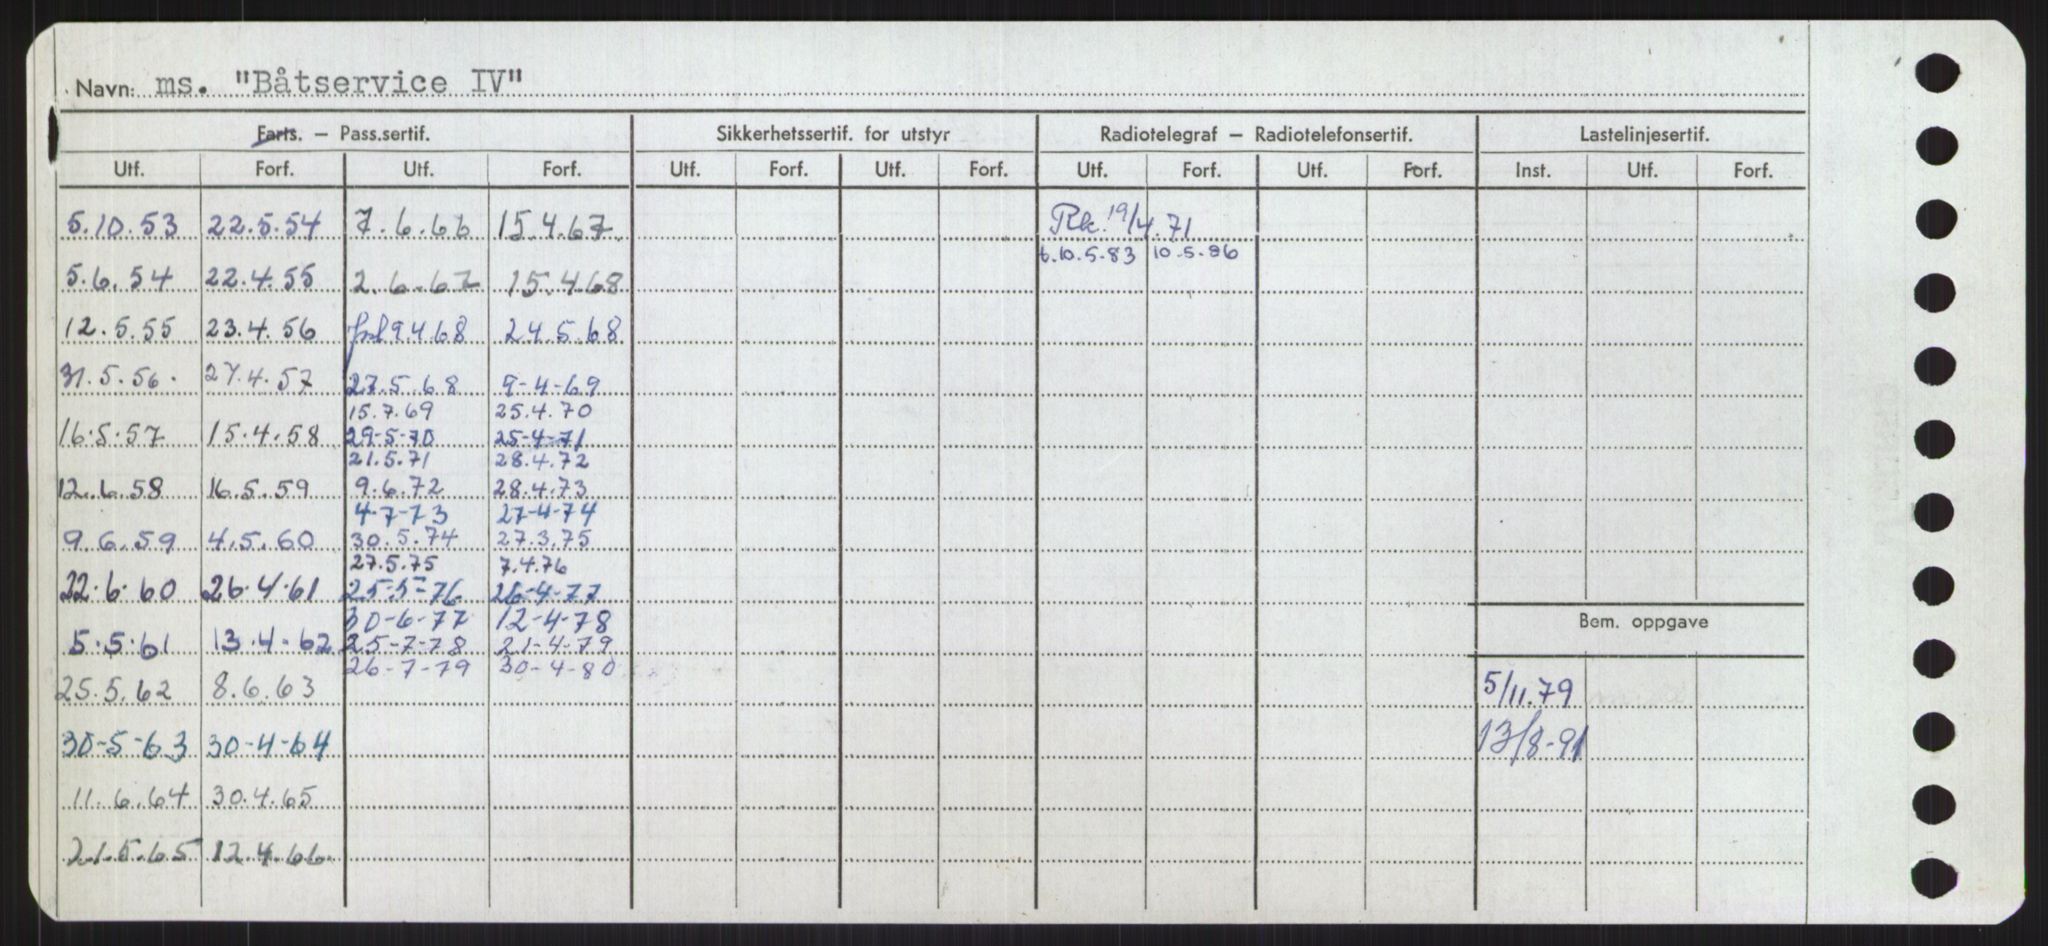 Navn: ms. "Båtservice IV"
Farts. – Pass.sertif. Sikkerhetssertif. for utstyr Radiotelegraf – Radiotelefonsertif. Lastelinjesertif.
Utf. Forf. Utf. Forf. Utf. Forf. Utf. Forf. Utf. Forf. Utf. Forf. Inst. Utf. Forf.
5.10.53 22.5.54 7.6.66 15.4.67 Rk. 19/4.71
t.10.5.83 10.5.86
5.6.54 22.4.55 2.6.67 15.4.68
12.5.55 23.4.56 forl 9.4.68 24.5.68
31.5.56. 27.4.57 27.5.68 9-4-69
15.7.69 25.4.70
16.5.57 15.4.58 29-5-70 25-4-71
21.5.71 28.4.72
12.6.58 16.5.59 9.6.72 28.4.73
4-7-73 27-4-74
9.6.59 4.5.60 30.5.74 27.3.75
27.5.75 7.4.76
22.6.60 26.4.61 25-5-76 26-4-77
30-6-77 12-4-78 Bem. oppgave
5.5.61 13.4-62 25-7-78 21-4-79
26-7-79 30-4-80
25.5.62 8.6.63 5/11.79
30-5-63 30-4-64 13/8-91
11.6.64 30.4.65
21.5.65 12.4.66